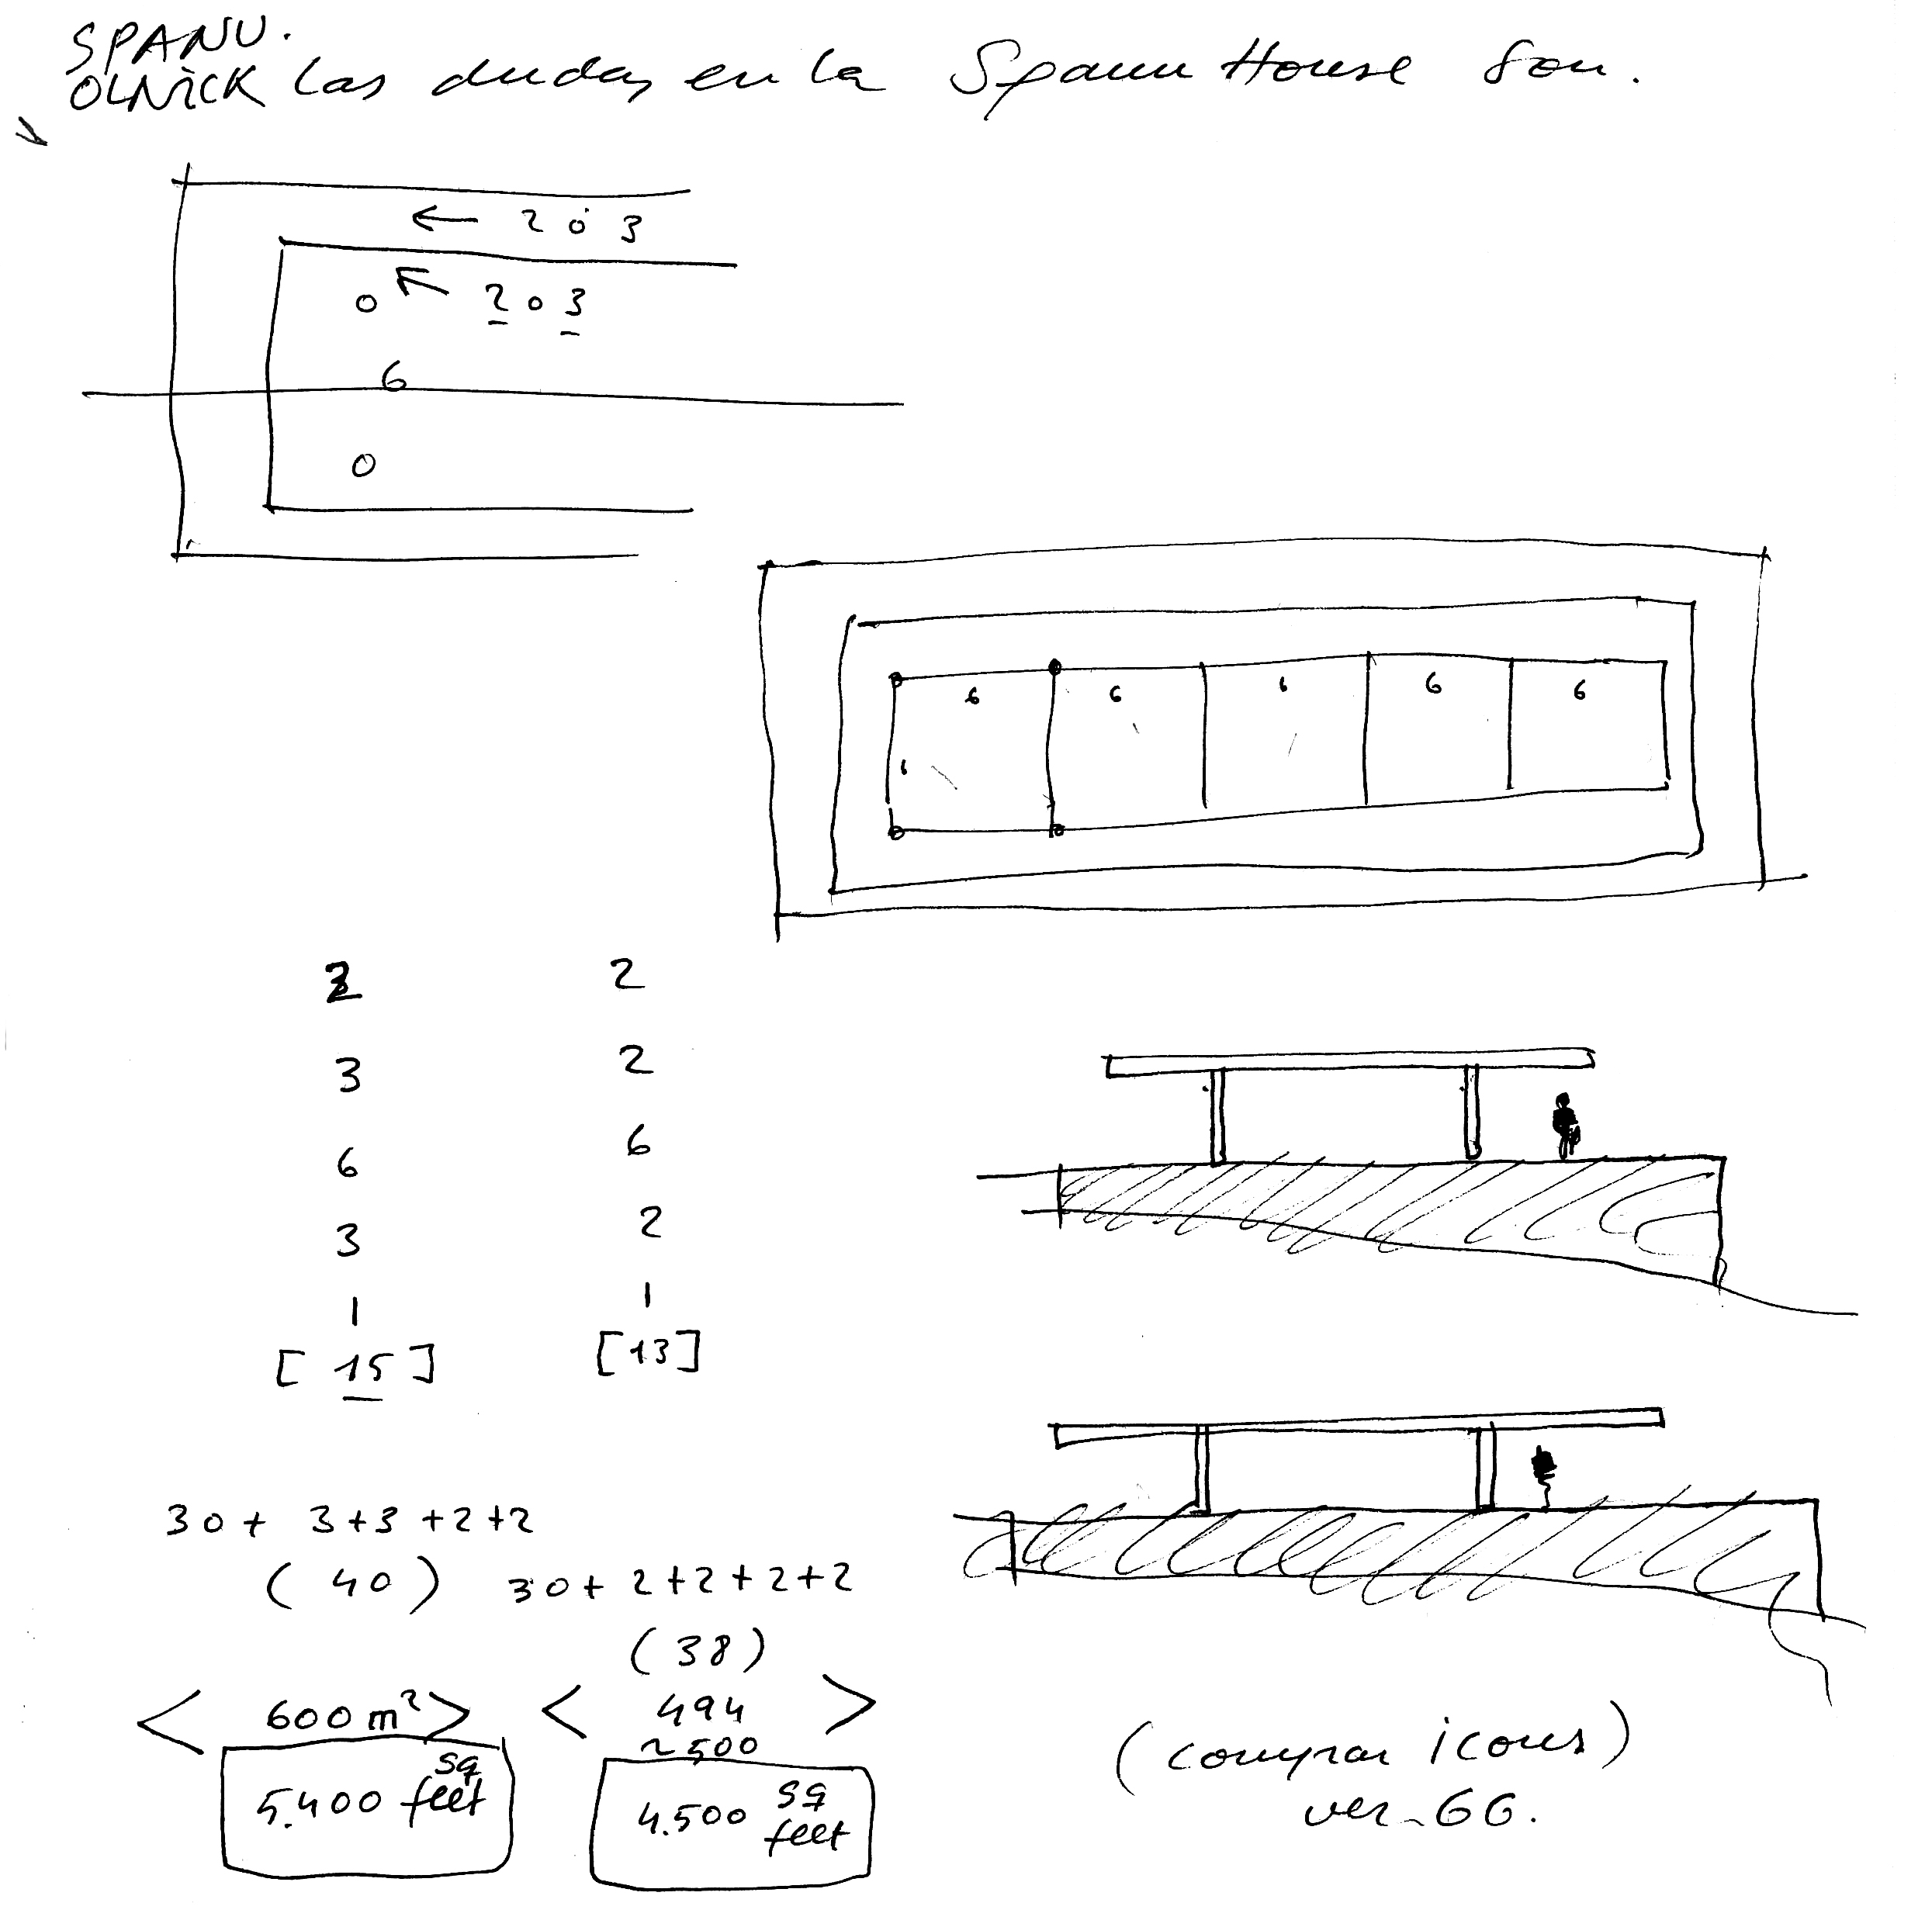 SPANU.
OLNICK las dudas en la Spanu House son.
← 2 ó 3
0 ← 2 0 3
6
0
6 6 6 6 6
6
3 2
3 2
6 6
3 2
1 1
[15] [13]
30+ 3+3+2+2
(40) 30+2+2+2+2
(38)
< 600 m²> < 494 >
~500
5.400 sq feet
4.500 sq feet
(comprar icons)
ver-GG.